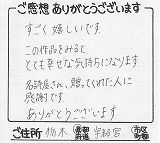 ご感想 ありがとうございます
すごく嬉しいです。
この作品をみると、
とても幸せな気持ちになります
名詩屋さん、贈ってくれた人に
感謝です。
ありがとうございます
ご住所 栃木 都道府県 宇都宮 市区町郡